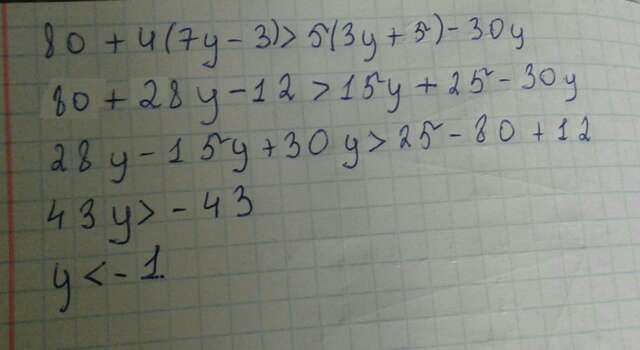 80 + 4(7y - 3) > 5(3y + 5) - 30y
80 + 28y - 12 > 15y + 25 - 30y
28y - 15y + 30y > 25 - 80 + 12
43y > - 43
y < - 1